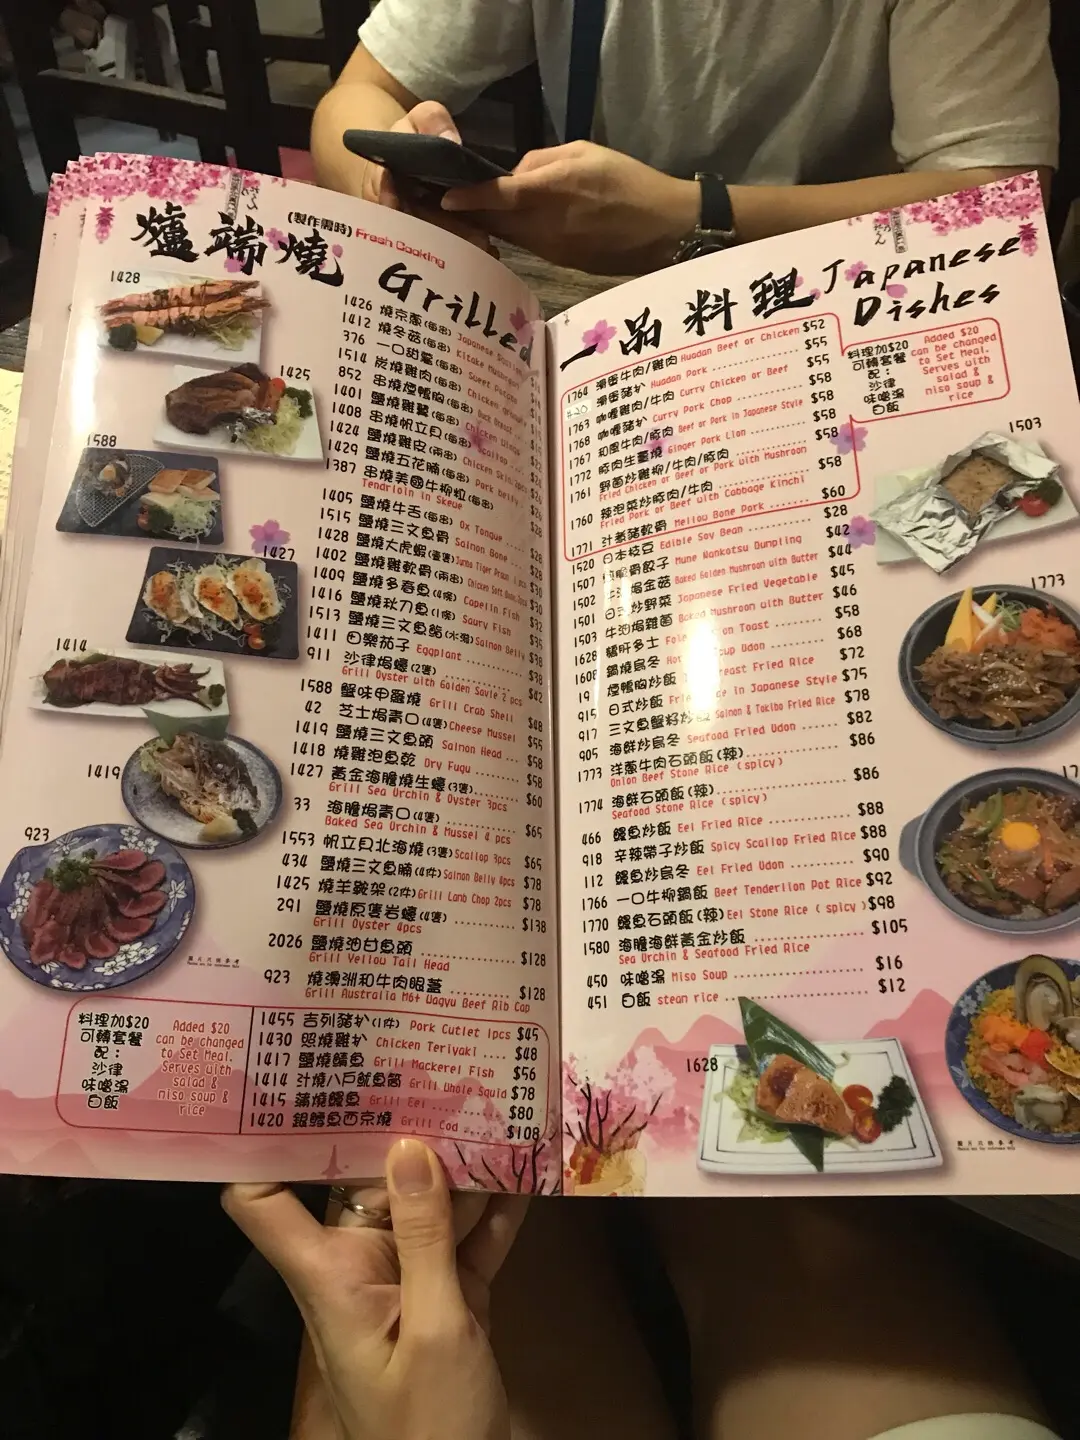 爐端燒
(製作需時) Fresh Cooking
Grilled
1428
1425
1588
1427
1414
1419
923
1426 燒京蔥(每串)
1412 燒冬菇(每串) Kitake Mushroom
376 一口甜薯(每串) Sweet Potato
1514 炭燒雞肉(每串) Chicken
852 串燒煙鴨胸(每串) Duck Breast
1401 鹽燒雞翼(每串) Chicken Wings
1408 串燒帆立貝(每串) Scallop
1424 鹽燒雞皮(兩串) Chicken Skin
1429 鹽燒五花腩(每串) Pork belly
1387 串燒美國牛柳粒(每串)
Tendrloin in Skewe
1405 鹽燒牛舌(每串) Ox Tongue
1515 鹽燒三文魚骨 Salmon Bone
1428 鹽燒大虎蝦 Jumbo Tiger Prawn
1402 鹽燒雞軟骨(兩串) Chicken Soft Bone
1409 鹽燒多春魚(4條) Capelin Fish
1416 鹽燒秋刀魚(1條) Saury Fish
1513 鹽燒三文魚鮨 Salmon Belly
1411 田樂茄子 Eggplant $38
911 沙律焗蠔(2隻) $42
Grill Oyster with Golden Savie 2 pcs
1588 蟹味甲羅燒 Grill Crab Shell $48
42 芝士焗青口(4隻) Cheese Mussel $55
1419 鹽燒三文魚頭 Salmon Head $58
1418 燒雞泡魚乾 Dry Fugu $58
1427 黃金海膽燒生蠔(3隻) $60
Grill Sea Urchin & Oyster 3pcs
33 海膽焗青口(4隻) $65
Baked Sea Urchin & Mussel 4 pcs
1553 帆立貝北海燒(3隻) Scallop 3pcs $65
434 鹽燒三文魚腩(4件) Salmon Belly 4pcs $78
1425 燒羊鞍架(2件) Grill Lamb Chop 2pcs $78
291 鹽燒原隻岩蠔(4隻) $138
Grill Oyster 4pcs
2026 鹽燒油甘魚頭 $128
Grill Yellow Tail Head
923 燒澳洲和牛肉眼蓋 $128
Grill Australia M6+ Wagyu Beef Rib Cap
圖片只供參考
料理加$20
可轉套餐
配：
沙律
味噌湯
白飯
Added $20
can be changed
to Set Meal.
Serves with
salad &
miso soup &
rice
1455 吉列豬扒(1件) Pork Cutlet 1pcs $45
1430 照燒雞扒 Chicken Teriyaki $48
1417 鹽燒鯖魚 Grill Mackerel Fish $56
1414 汁燒八戶魷魚筒 Grill Whole Squid $78
1415 蒲燒鰻魚 Grill Eel $80
1420 銀鱈魚西京燒 Grill Cod $108
一品料理 Japanese
Dishes
1764 滑蛋牛肉/雞肉 Huadan Beef or Chicken $52
滑蛋豬扒 Huadan Pork $55
1763 咖喱雞肉/牛肉 Curry Chicken or Beef $55
1768 咖喱豬扒 Curry Pork Chop $58
1767 和風牛肉/豚肉 Beef or Pork in Japanese Style $58
1772 豚肉生薑燒 Ginger Pork Lion $58
1761 野菌炒雞柳/牛肉/豚肉 $58
Fried Chicken or Beef or Pork with Mushroom
1760 辣泡菜炒豚肉/牛肉 $58
Fried Pork or Beef with Cabbage Kinchi
1771 汁煮豬軟骨 Mellow Bone Pork $60
料理加$20
可轉套餐
配：
沙律
味噌湯
白飯
Added $20
can be changed
to Set Meal.
Serves with
salad &
miso soup &
rice
1520 日本枝豆 Edible Soy Bean $28
1507 骨餃子 Mune Nankotsu Dumpling $42
1502 焗金菇 Baked Golden Mushroom with Butter $44
1501 日式炒野菜 Japanese Fried Vegetable $45
1503 牛油焗雜菌 Baked Mushroom with Butter $46
1628 鵝肝多士 Toast $58
1608 鍋燒烏冬 Soup Udon $68
19 煙鴨胸炒飯 Breast Fried Rice $72
915 日式炒飯 Fried Rice in Japanese Style $75
917 三文魚蟹籽炒飯 Salmon & Tobiko Fried Rice $78
905 海鮮炒烏冬 Seafood Fried Udon $82
1773 洋蔥牛肉石頭飯(辣) $86
Onion Beef Stone Rice (spicy)
1774 海鮮石頭飯(辣) $86
Seafood Stone Rice (spicy)
466 鰻魚炒飯 Eel Fried Rice $88
918 辛辣帶子炒飯 Spicy Scallop Fried Rice $88
112 鰻魚炒烏冬 Eel Fried Udon $90
1766 一口牛柳鍋飯 Beef Tenderlion Pot Rice $92
1770 鰻魚石頭飯(辣) Eel Stone Rice (spicy) $98
1580 海膽海鮮黃金炒飯 $105
Sea Urchin & Seafood Fried Rice
450 味噌湯 Miso Soup $16
451 白飯 stean rice $12
1503
1773
1628
圖片只供參考